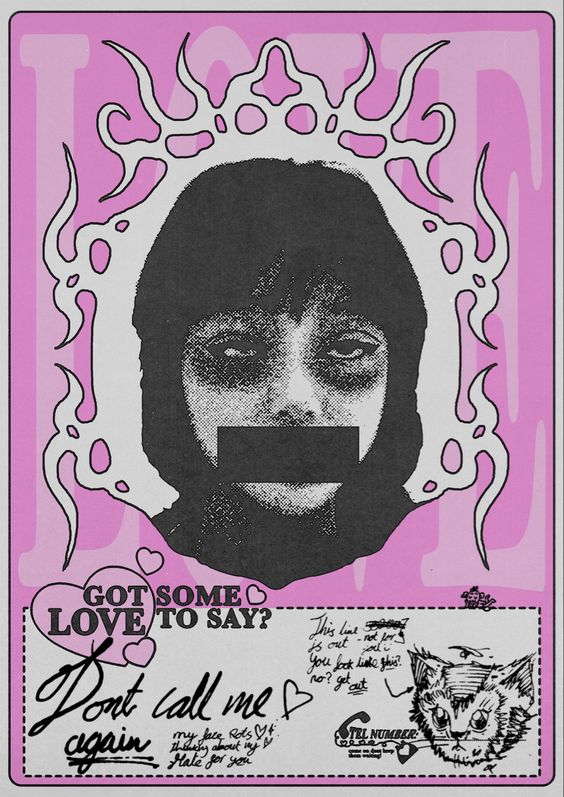 LOVE
GOT SOME
LOVE TO SAY?
Dont call me
again
my face Rots
thinking about my
Hate for you
This line
is out - not for
you look like this?
no? get
out
TEL NUMBER:
come on dont keep
them waiting!